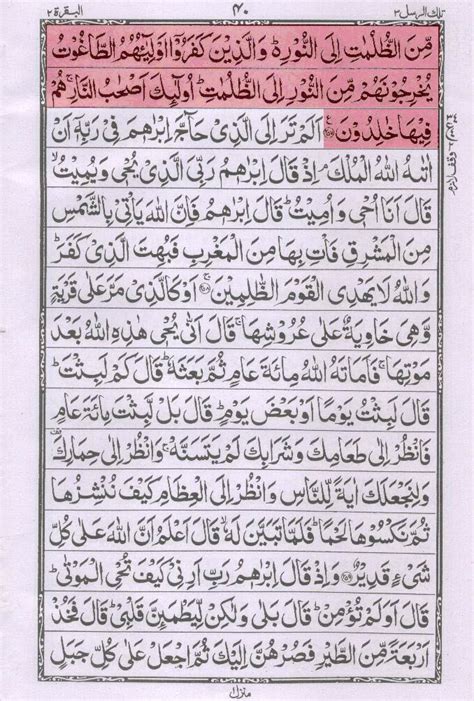 البقرة ٢ ٤٠ تلك الرسل ٣
مِّنَ الظُّلُمٰتِ اِلَى النُّوْرِ ؕ وَالَّذِیْنَ كَفَرُوْۤا اَوْلِیٰٓـُٔهُمُ الطَّاغُوْتُ
یُخْرِجُوْنَهُمْ مِّنَ النُّوْرِ اِلَى الظُّلُمٰتِ ؕ اُولٰٓئِكَ اَصْحٰبُ النَّارِ ۚ هُمْ
فِیْهَا خٰلِدُوْنَ ۟ اَلَمْ تَرَ اِلَى الَّذِیْ حَآجَّ اِبْرٰهٖمَ فِیْ رَبِّهٖۤ اَنْ
اٰتٰىهُ اللّٰهُ الْمُلْكَ ۘ اِذْ قَالَ اِبْرٰهٖمُ رَبِّیَ الَّذِیْ یُحْیٖ وَیُمِیْتُ ۙ
قَالَ اَنَا اُحْیٖ وَاُمِیْتُ ؕ قَالَ اِبْرٰهٖمُ فَاِنَّ اللّٰهَ یَاْتِیْ بِالشَّمْسِ
مِنَ الْمَشْرِقِ فَاْتِ بِهَا مِنَ الْمَغْرِبِ فَبُهِتَ الَّذِیْ كَفَرَ ؕ
وَاللّٰهُ لَا یَهْدِی الْقَوْمَ الظّٰلِمِیْنَ ۟ۚ اَوْ كَالَّذِیْ مَرَّ عَلٰی قَرْیَةٍ
وَّهِیَ خَاوِیَةٌ عَلٰی عُرُوْشِهَا ۚ قَالَ اَنّٰی یُحْیٖ هٰذِهِ اللّٰهُ بَعْدَ
مَوْتِهَا ۚ فَاَمَاتَهُ اللّٰهُ مِائَةَ عَامٍ ثُمَّ بَعَثَهٗ ؕ قَالَ كَمْ لَبِثْتَ ؕ
قَالَ لَبِثْتُ یَوْمًا اَوْ بَعْضَ یَوْمٍ ؕ قَالَ بَلْ لَّبِثْتَ مِائَةَ عَامٍ
فَانْظُرْ اِلٰی طَعَامِكَ وَشَرَابِكَ لَمْ یَتَسَنَّهْ ۚ وَانْظُرْ اِلٰی حِمَارِكَ
وَلِنَجْعَلَكَ اٰیَةً لِّلنَّاسِ وَانْظُرْ اِلَی الْعِظَامِ كَیْفَ نُنْشِزُهَا
ثُمَّ نَكْسُوْهَا لَحْمًا ؕ فَلَمَّا تَبَیَّنَ لَهٗ ۙ قَالَ اَعْلَمُ اَنَّ اللّٰهَ عَلٰی كُلِّ
شَیْءٍ قَدِیْرٌ ۟ وَاِذْ قَالَ اِبْرٰهٖمُ رَبِّ اَرِنِیْ كَیْفَ تُحْیِ الْمَوْتٰی ؕ
قَالَ اَوَلَمْ تُؤْمِنْ ؕ قَالَ بَلٰی وَلٰكِنْ لِّیَطْمَئِنَّ قَلْبِیْ ؕ قَالَ فَخُذْ
اَرْبَعَةً مِّنَ الطَّیْرِ فَصُرْهُنَّ اِلَیْكَ ثُمَّ اجْعَلْ عَلٰی كُلِّ جَبَلٍ
منزل ١